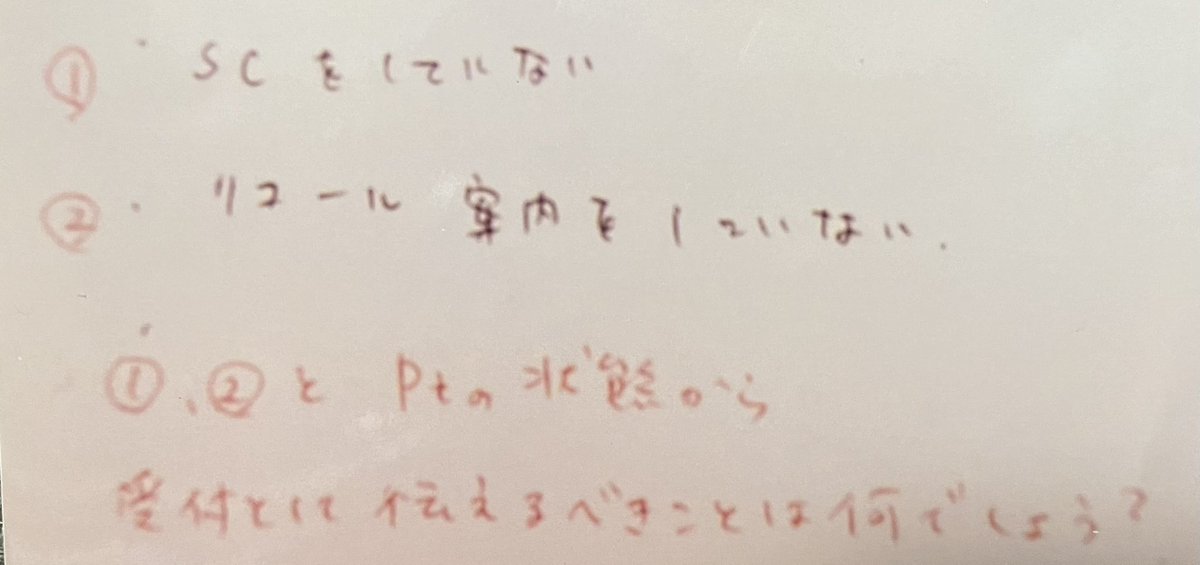 ① ・ SCをしていない
② ・ リコール案内をしていない.
①、②とPtの状態から
受付として伝えるべきことは何でしょう?